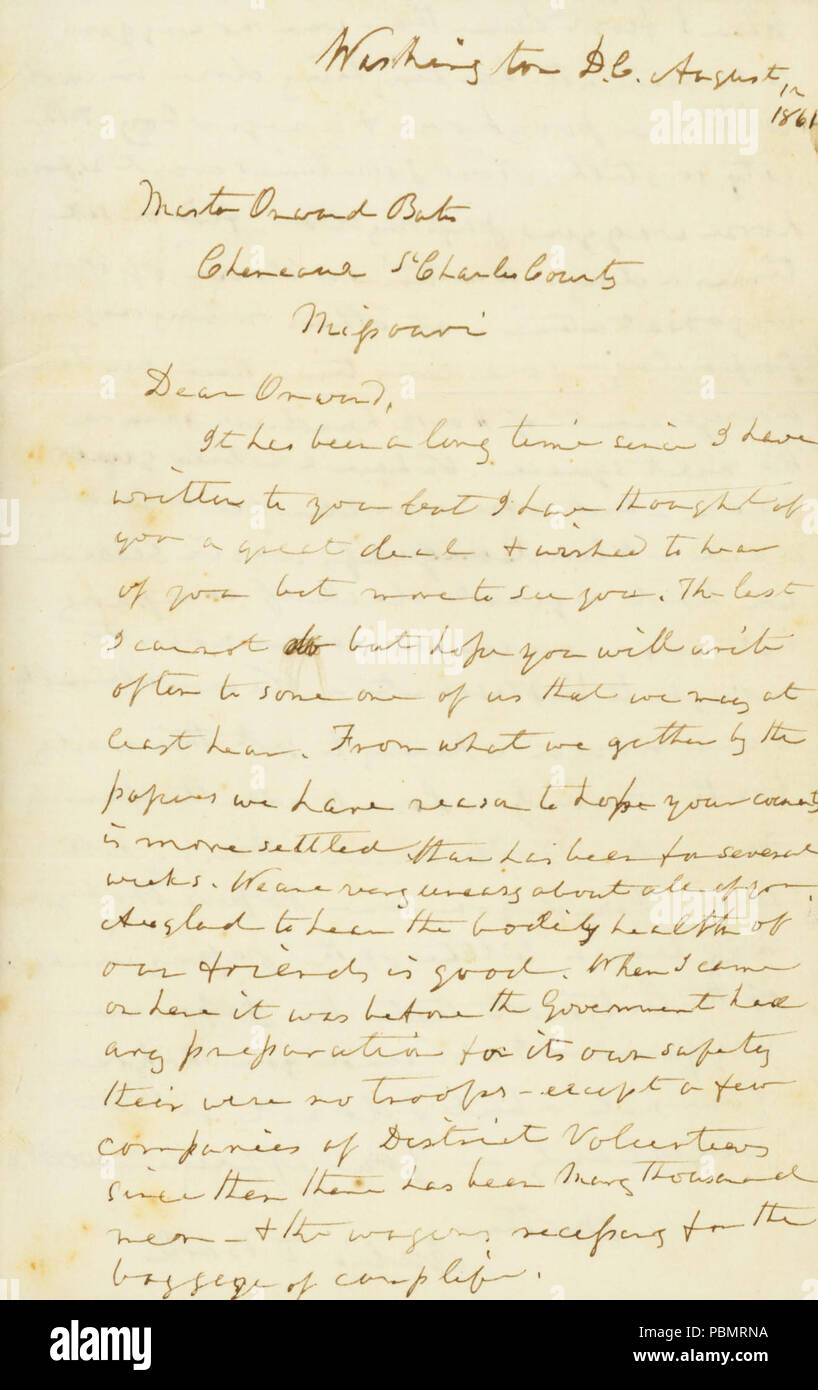 Washington D.C. August
12
1861
Master Onward Bates
St Charles County
Missouri
Dear Onward,
It has been a long time since I have
written to you but I have thought of
you a great deal & wished to hear
of you but more to see you. The last
I cannot do but hope you will write
often to some one of us that we may at
least hear. From what we gather by the
papers we have reason to hope your county
is more settled than has been for several
weeks. We are very uneasy about all of you.
glad to hear the bodily health of
our friends is good. When I came
on here it was before the Government had
any preparation for its own safety
their were no troops - except a few
companies of District Volunteers
since then there has been many thousand
men - & the wagons necessary for the
baggage of camp life.
alamy
alamy
alamy
alamy
Image ID: PBMRNA
www.alamy.com